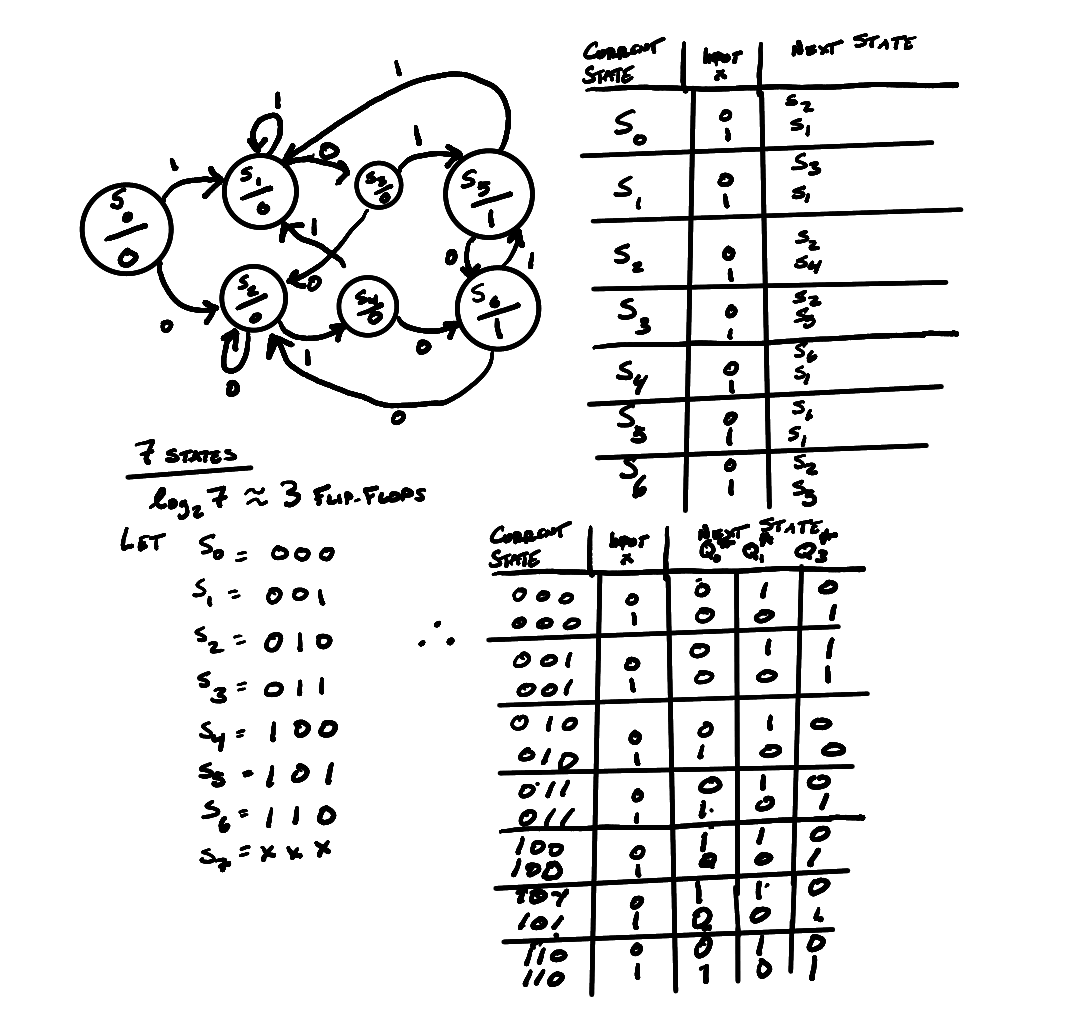 1
1
1
0
1
S0/0
S1/0
S3/0
S5/1
0
1
0
1
S2/0
S4/0
S6/1
0
0
1
0
0
CURRENT STATE INPUT x NEXT STATE
S0 0 S2
1 S1
S1 0 S3
1 S1
S2 0 S2
1 S4
S3 0 S2
1 S5
S4 0 S6
1 S1
S5 0 S6
1 S1
S6 0 S2
1 S5
7 STATES
log2 7 ≈ 3 FLIP-FLOPS
LET S0 = 000
S1 = 001
S2 = 010
S3 = 011
S4 = 100
S5 = 101
S6 = 110
S7 = x x x
∴
CURRENT STATE INPUT x NEXT STATE
Q0* Q1* Q3*
000 0 0 1 0
000 1 0 0 1
001 0 0 1 1
001 1 0 0 1
010 0 0 1 0
010 1 1 0 0
011 0 0 1 0
011 1 1 0 1
100 0 1 1 0
100 1 0 0 1
101 0 1 1 0
101 1 0 0 1
110 0 0 1 0
110 1 1 0 1